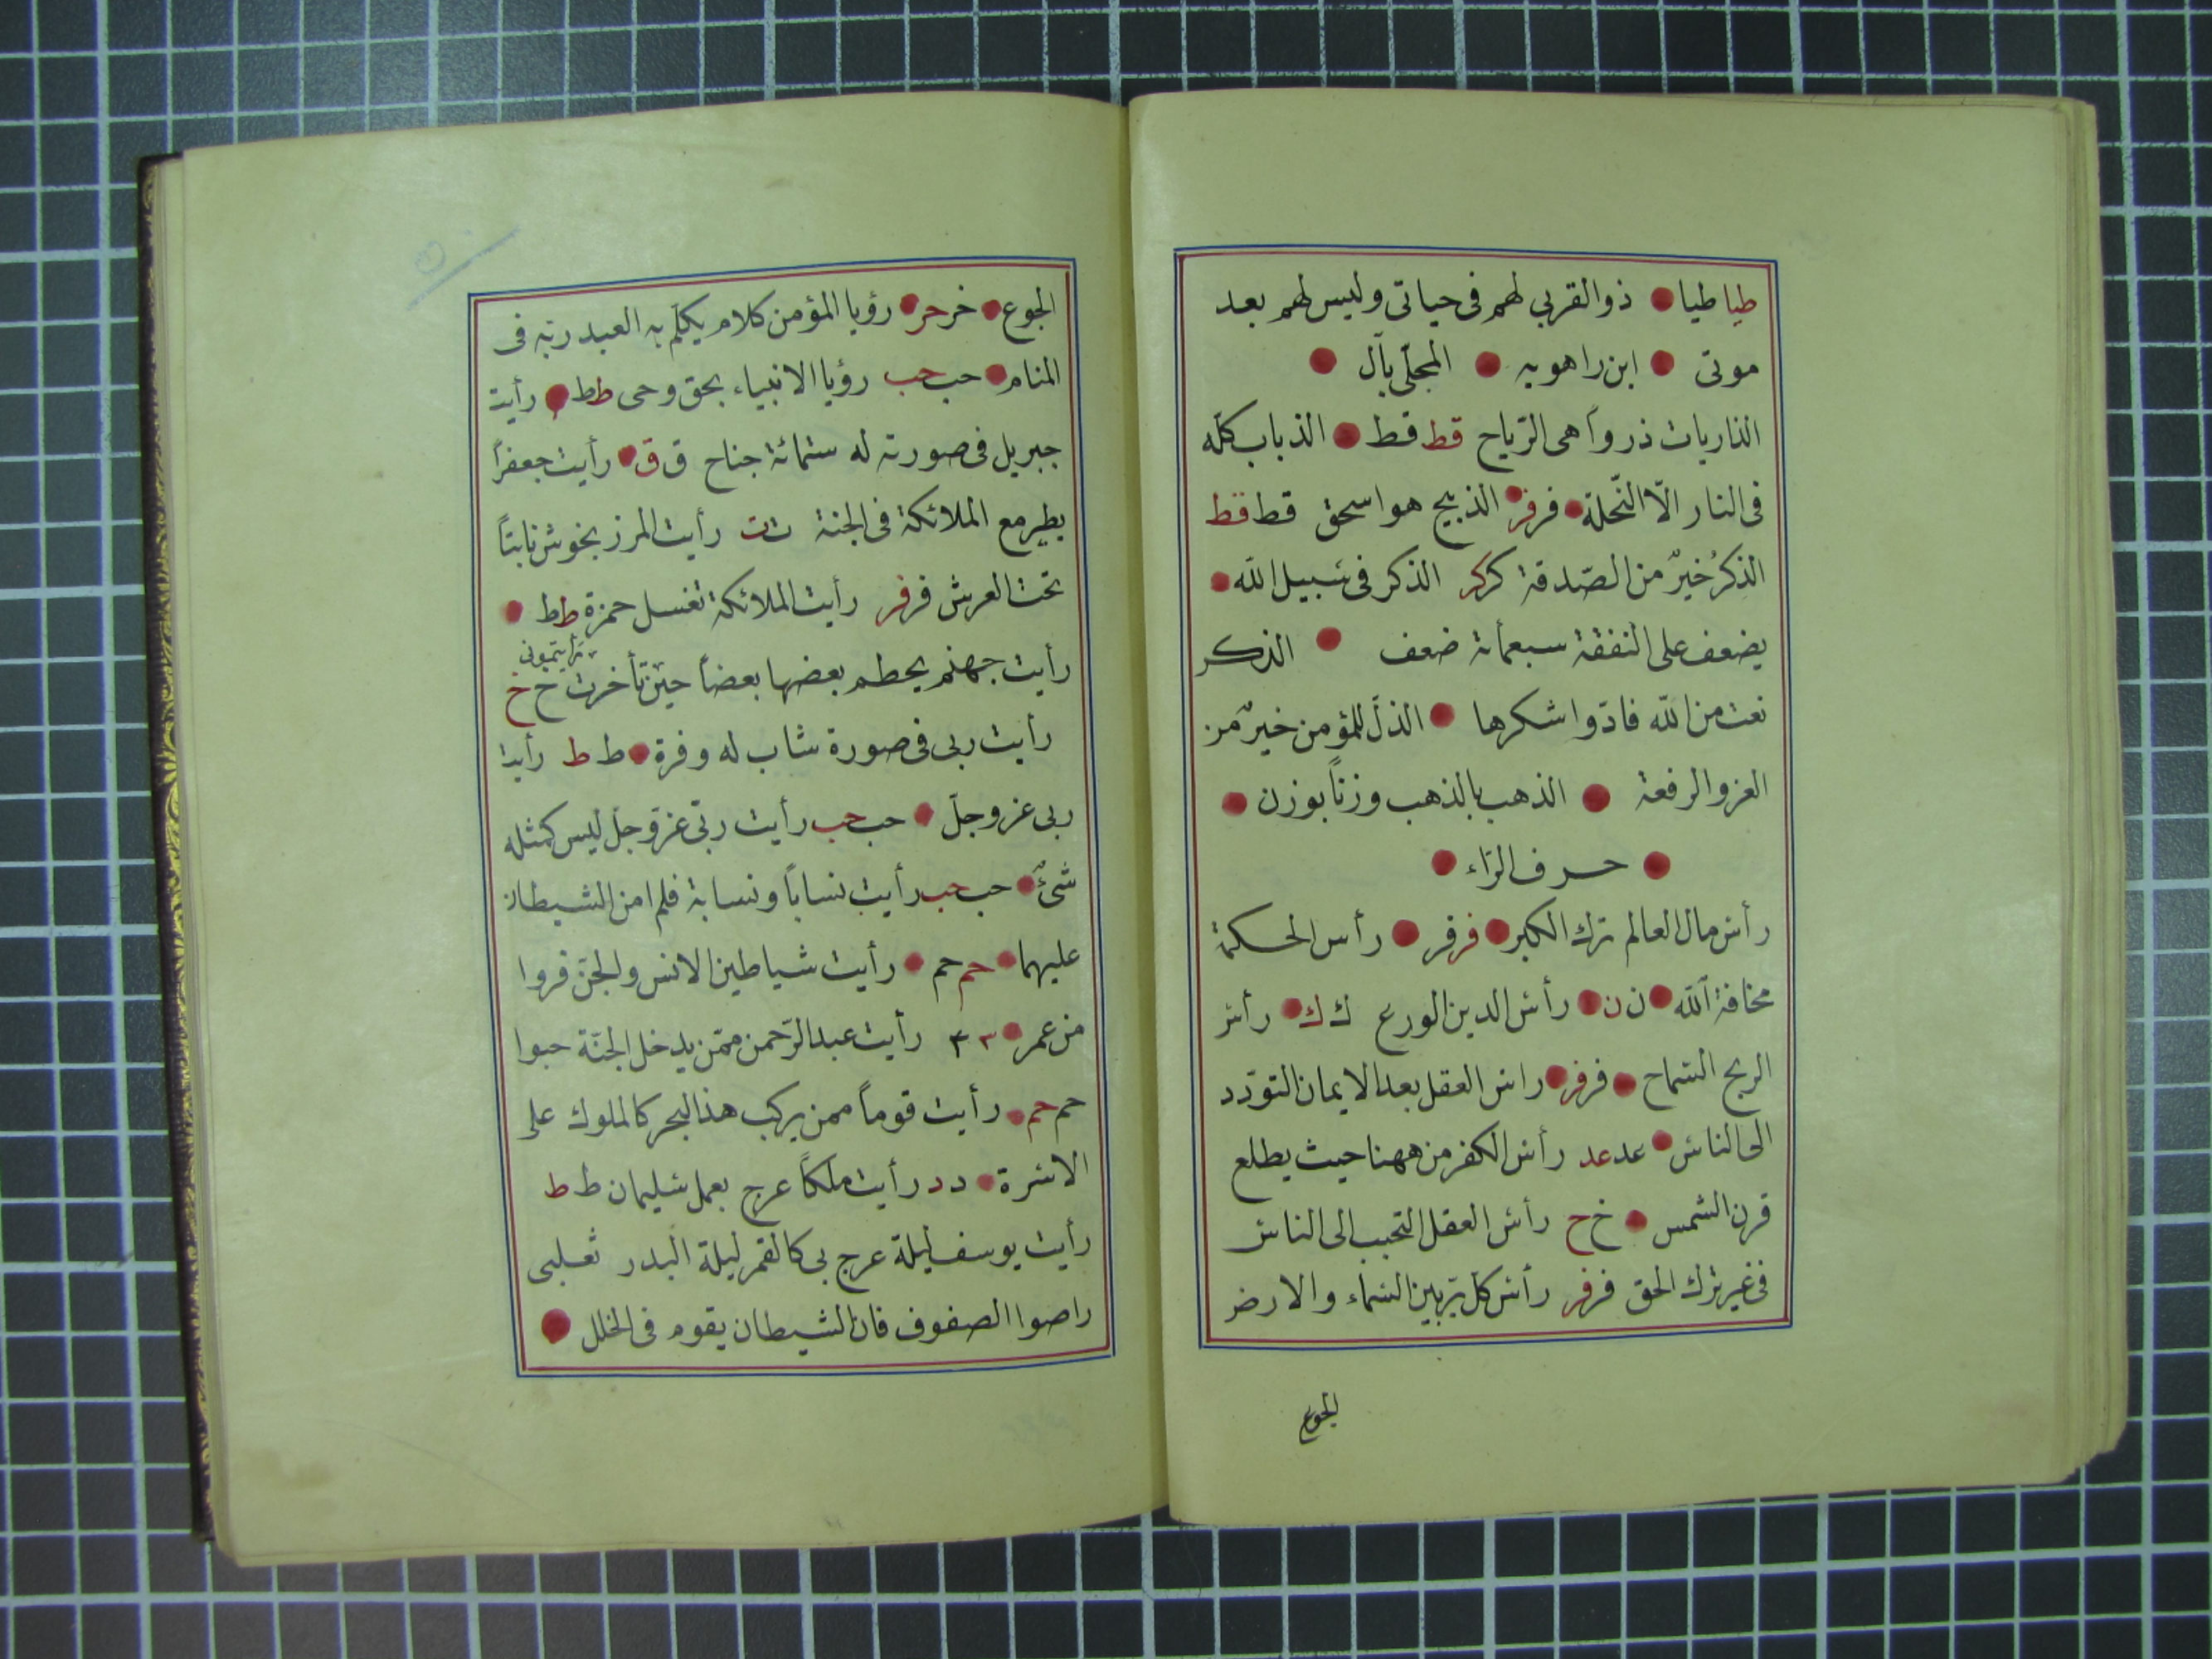 طيا طيا ذوالقربى لهم فى حياتى وليس لهم بعد
موتى ابن راهويه المجلّى بآل
الذاريات ذرواً هى الرّياح قط قط الذباب كلّه
فى النار الّا النّحلة فر فر الذبيح هو اسحق قط قط
الذِكرُ خيرٌ من الصّدقة كر كر الذكر فى سبيل الله
يضعف على النفقة سبعمأة ضعف الذكر
نعت من الله فادّوا شكرها الذلّ للمؤمن خيرٌ من
العز والرفعة الذهب بالذهب وزناً بوزن
حرف الرّاء
رأس مال العالم ترك الكبر فر فر رأس الحكمة
مخافة الله ن ن رأس الدين الورع ك ك رأس
الربح السّماح فر فر راس العقل بعد الايمان التوّدد
الى الناس عد عد رأس الكفر من ههنا حيث يطلع
قرن الشمس خ ح رأس العقل التحبب الى الناس
فى غير ترك الحق فر فر رأس كلّ بين السّماء والارض
الجوع
الجوع خر حر رؤيا المؤمن كلام يكلّم به العبد ربّه فى
المنام حب حب رؤيا الانبياء بحق وحى ط ط رأيت
جبريل فى صورته له ستمائة جناح ق ق رأيت جعفراً
يطير مع الملائكة فى الجنة ت ت رأيت المرزبخوش نابتاً
تحت العرش فر فر رأيت الملائكة تغسل حمزة ط ط
رأيتمونى
رأيت جهنم يحطم بعضها بعضاً حين تأخرت خ خ
رأيت ربى فى صورة شاب له وفرة ط ط رأيت
ربى عز وجلّ حب حب رأيت ربّى عزّ وجلّ ليس كمثله
شئٌ حب حب رأيت نساباً ونسابة فلم امن الشيطان
عليهما حم حم رأيت شياطين الانس والجنّ فروا
من عمر رأيت عبد الرّحمن ممّن يدخل الجنّة حبوا
حم حم رأيت قوماً ممن يركب هذا البحر كالملوك على
الاسّرة د د رأيت ملكاً عرج بعمل سليمان ط ط
رأيت يوسف ليلة عرج بى كالقمر ليلة البدر ثعلبى
راصوا الصفوف فان الشيطان يقوم فى الخلل